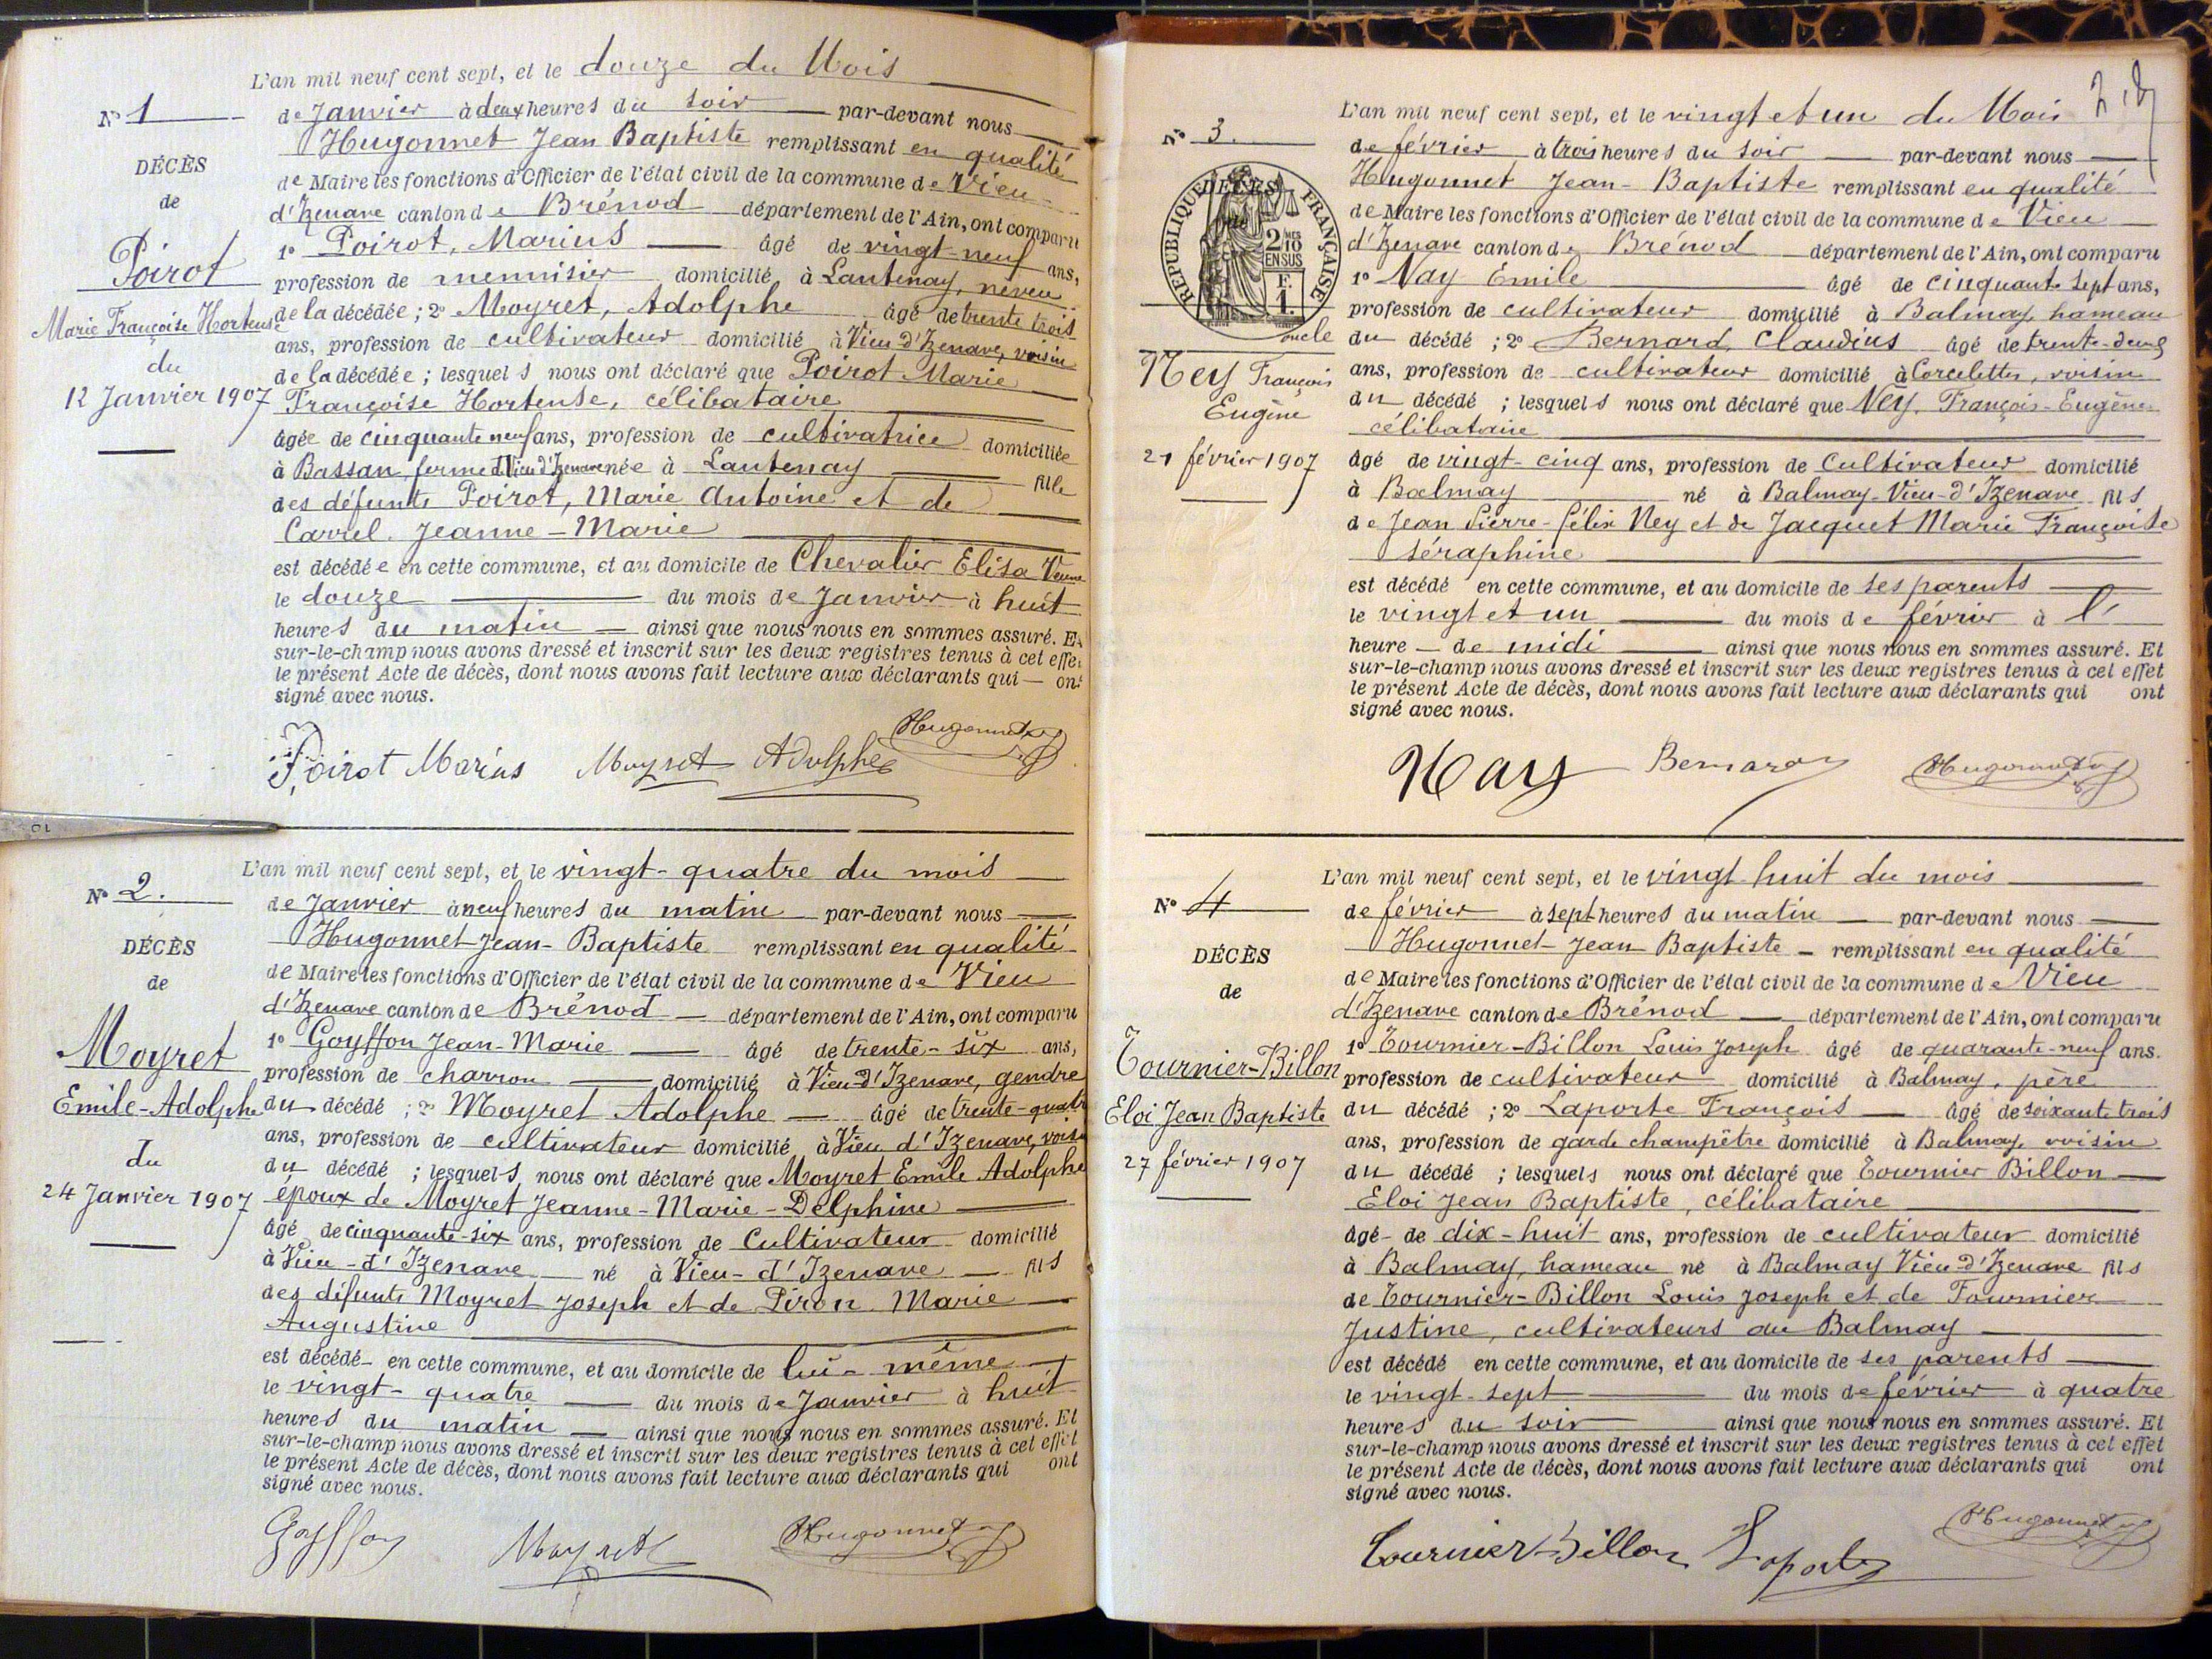 L'an mil neuf cent sept, et le douze du Mois
N° 1
de Janvier à deux heures du soir par-devant nous
Hugonnet Jean Baptiste remplissant en qualité
DÉCÈS
de Maire les fonctions d'Officier de l'état civil de la commune de Vieu
de
d'Izenave canton de Brénod département de l'Ain, ont comparu
1° Poirot, Marius âgé de vingt-neuf ans,
Poirot
profession de menuisier domicilié à Lantenay, neveu
Marie Françoise Hortense
de la décédée ; 2° Moyret, Adolphe âgé de trente trois
ans, profession de cultivateur domicilié à Vieu d'Izenave, voisin
du
de la décédée ; lesquels nous ont déclaré que Poirot Marie
12 Janvier 1907
Françoise Hortense, célibataire
âgée de cinquante neuf ans, profession de cultivatrice domiciliée
à Bassan, ferme d. Vieu d'Izenave née à Lantenay fille
des défunts Poirot, Marie Antoine et de
Carrel Jeanne-Marie
est décédée en cette commune, et au domicile de Chevalier Elisa Veuve
le douze du mois de Janvier à huit
heures du matin ainsi que nous nous en sommes assuré. Et
sur-le-champ nous avons dressé et inscrit sur les deux registres tenus à cet effet
le présent Acte de décès, dont nous avons fait lecture aux déclarants qui ont
signé avec nous.
Poirot Marius Moyret Adolphe Hugonnet
L'an mil neuf cent sept, et le vingt-quatre du mois
N° 2.
de Janvier à neuf heures du matin par-devant nous
Hugonnet Jean-Baptiste remplissant en qualité
DÉCÈS
de Maire les fonctions d'Officier de l'état civil de la commune de Vieu
de
d'Izenave canton de Brénod département de l'Ain, ont comparu
1° Goyffon Jean-Marie âgé de trente-six ans,
Moyret
profession de charron domicilié à Vieu d'Izenave, gendre
Emile-Adolphe
du décédé ; 2° Moyret Adolphe âgé de trente-quatre
ans, profession de cultivateur domicilié à Vieu d'Izenave, voisin
du
du décédé ; lesquels nous ont déclaré que Moyret Emile Adolphe
24 Janvier 1907
époux de Moyret Jeanne-Marie-Delphine
âgé de cinquante-six ans, profession de Cultivateur domicilié
à Vieu-d'Izenave né à Vieu-d'Izenave fils
des défunts Moyret Joseph et de Piron Marie
Augustine
est décédé en cette commune, et au domicile de lui-même
le vingt-quatre du mois de Janvier à huit
heures du matin ainsi que nous nous en sommes assuré. Et
sur-le-champ nous avons dressé et inscrit sur les deux registres tenus à cet effet
le présent Acte de décès, dont nous avons fait lecture aux déclarants qui ont
signé avec nous.
Goyffon Moyret Hugonnet
L'an mil neuf cent sept, et le vingt et un du Mois
N° 3.
de février à trois heures du soir par-devant nous
Hugonnet Jean-Baptiste remplissant en qualité
DÉCÈS
de
RÉPUBLIQUE FRANÇAISE
2/10 MES EN SUS
F. 1.
de Maire les fonctions d'Officier de l'état civil de la commune de Vieu
d'Izenave canton de Brénod département de l'Ain, ont comparu
1° Nay Emile âgé de cinquante sept ans,
profession de cultivateur domicilié à Balmay, hameau
oncle du décédé ; 2° Bernard, Claudius âgé de trente-deux
Ney François
ans, profession de cultivateur domicilié à Corcelettes, voisin
Eugène
du décédé ; lesquels nous ont déclaré que Ney, François-Eugène
célibataire
21 février 1907
âgé de vingt-cinq ans, profession de Cultivateur domicilié
à Balmay né à Balmay-Vieu-d'Izenave fils
de Jean Pierre-Félix Ney et de Jacquet Marie Françoise
Séraphine
est décédé en cette commune, et au domicile de ses parents
le vingt et un du mois de février à l'
heure de midi ainsi que nous nous en sommes assuré. Et
sur-le-champ nous avons dressé et inscrit sur les deux registres tenus à cet effet
le présent Acte de décès, dont nous avons fait lecture aux déclarants qui ont
signé avec nous.
Nay Bernard Hugonnet
L'an mil neuf cent sept, et le vingt huit du mois
N° 4
de février à sept heures du matin par-devant nous
Hugonnet Jean Baptiste remplissant en qualité
DÉCÈS
de Maire les fonctions d'Officier de l'état civil de la commune de Vieu
de
d'Izenave canton de Brénod département de l'Ain, ont comparu
1° Tournier-Billon Louis Joseph âgé de quarante-neuf ans.
Tournier-Billon
profession de cultivateur domicilié à Balmay, père
Eloi Jean Baptiste
du décédé ; 2° Laporte François âgé de soixante trois
ans, profession de garde champêtre domicilié à Balmay, voisin
27 février 1907
du décédé ; lesquels nous ont déclaré que Tournier Billon
Eloi Jean Baptiste, célibataire
âgé de dix-huit ans, profession de cultivateur domicilié
à Balmay, hameau né à Balmay Vieu d'Izenave fils
de Tournier-Billon Louis Joseph et de Tournier
Justine, cultivateurs au Balmay
est décédé en cette commune, et au domicile de ses parents
le vingt-sept du mois de février à quatre
heures du soir ainsi que nous nous en sommes assuré. Et
sur-le-champ nous avons dressé et inscrit sur les deux registres tenus à cet effet
le présent Acte de décès, dont nous avons fait lecture aux déclarants qui ont
signé avec nous.
Tournier-Billon Laporte Hugonnet